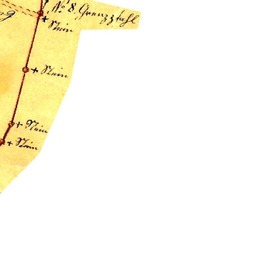 № 8. Grenzpfahl
+ Stein
+ Stein
+ Stein
+ Stein